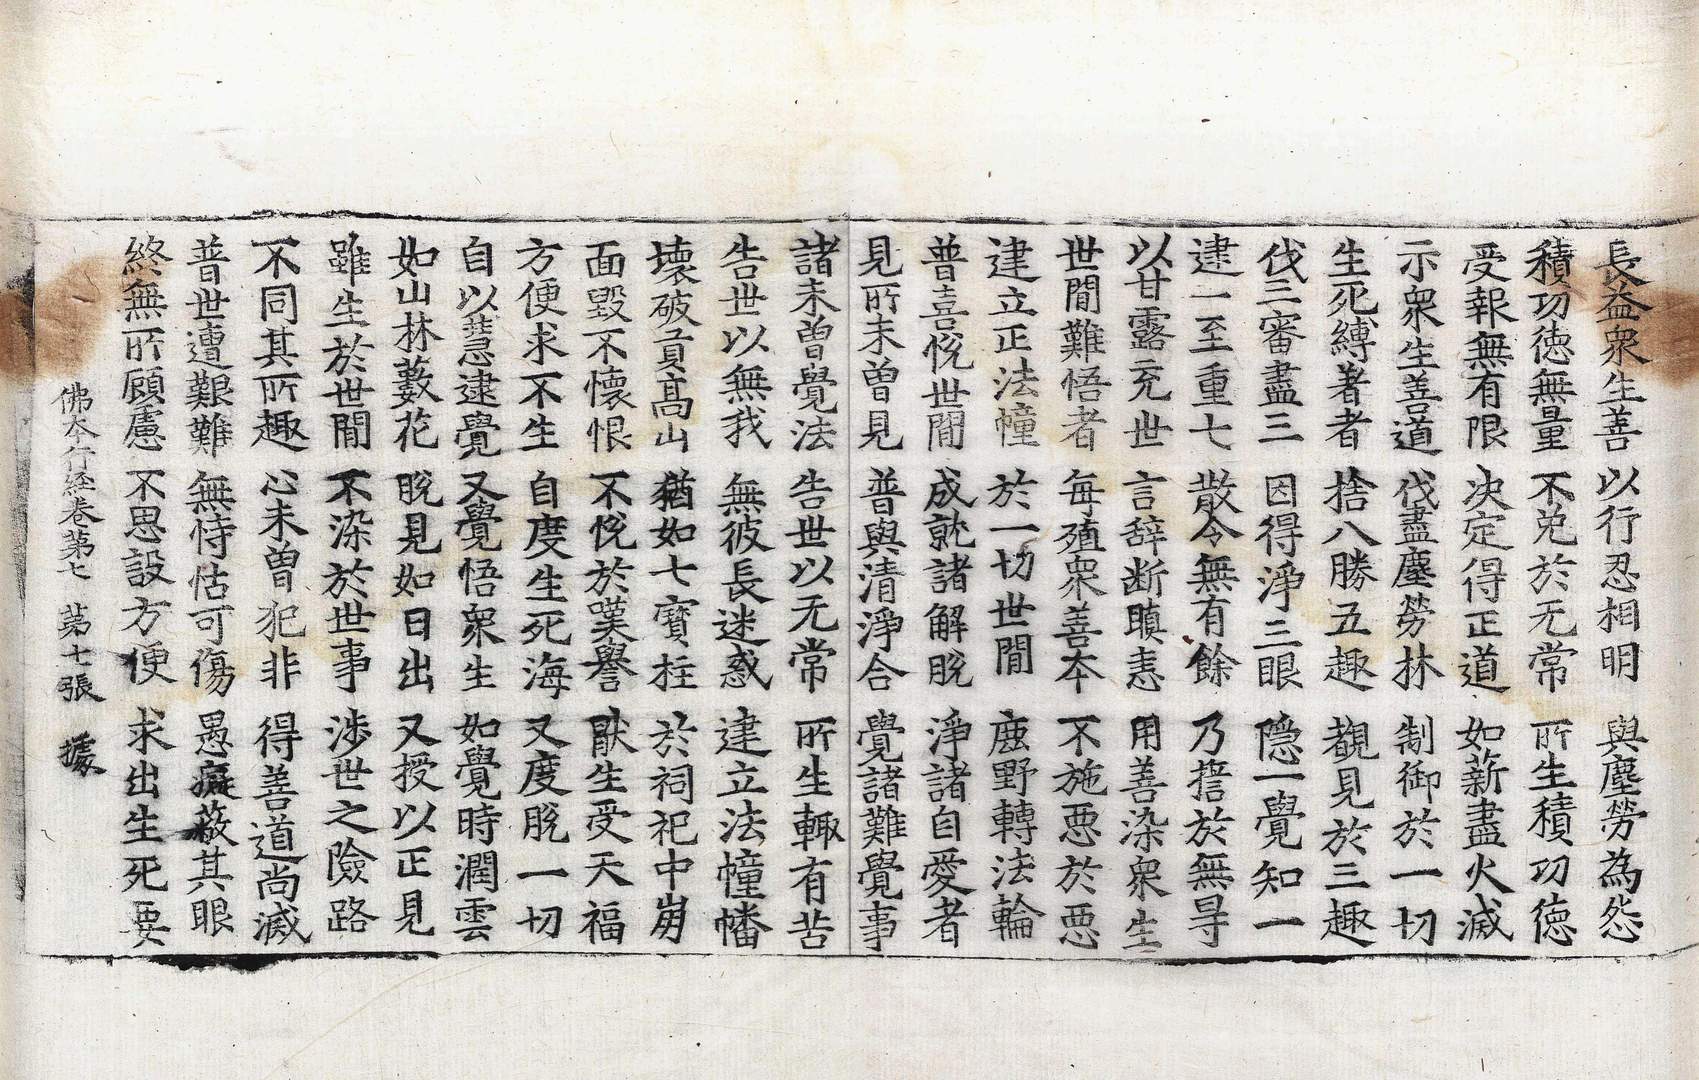 長益衆生善 以行忍相明 與塵勞為怨
積功德無量 不免於无常 所生積功德
受報無有限 決定得正道 如薪盡火滅
示衆生善道 伐盡塵勞林 制御於一切
生死縛著者 捨八勝五趣 覩見於三趣
伐三審盡三 因得淨三眼 隱一覺知一
逮一至重七 散令無有餘 乃捨於無㝵
以甘露充世 言辞断瞋恚 用善染衆生
世間難悟者 每殖衆善本 不施惡於惡
建立正法幢 於一切世間 鹿野轉法輪
普喜悅世間 成就諸解脫 淨諸自愛者
見所未曾見 普與清淨合 覺諸難覺事
諸未曾覺法 告世以无常 所生輙有苦
告世以無我 無彼長迷惑 建立法幢幡
壊破貢髙山 猶如七寶柱 於祠祀中崩
面毀不懷恨 不悅於嘆譽 猒生受天福
方便求不生 自度生死海 又度脫一切
自以慧逮覺 又覺悟衆生 如覺時潤雲
如山林藪花 脫見如日出 又授以正見
雖生於世間 不染於世事 渉世之險路
不同其所趣 心未曾犯非 得善道尚滅
普世遭艱難 無恃怙可傷 愚癡蔽其眼
終無所顧慮 不思設方便 求出生死要
佛本行経卷第七 第十張 據